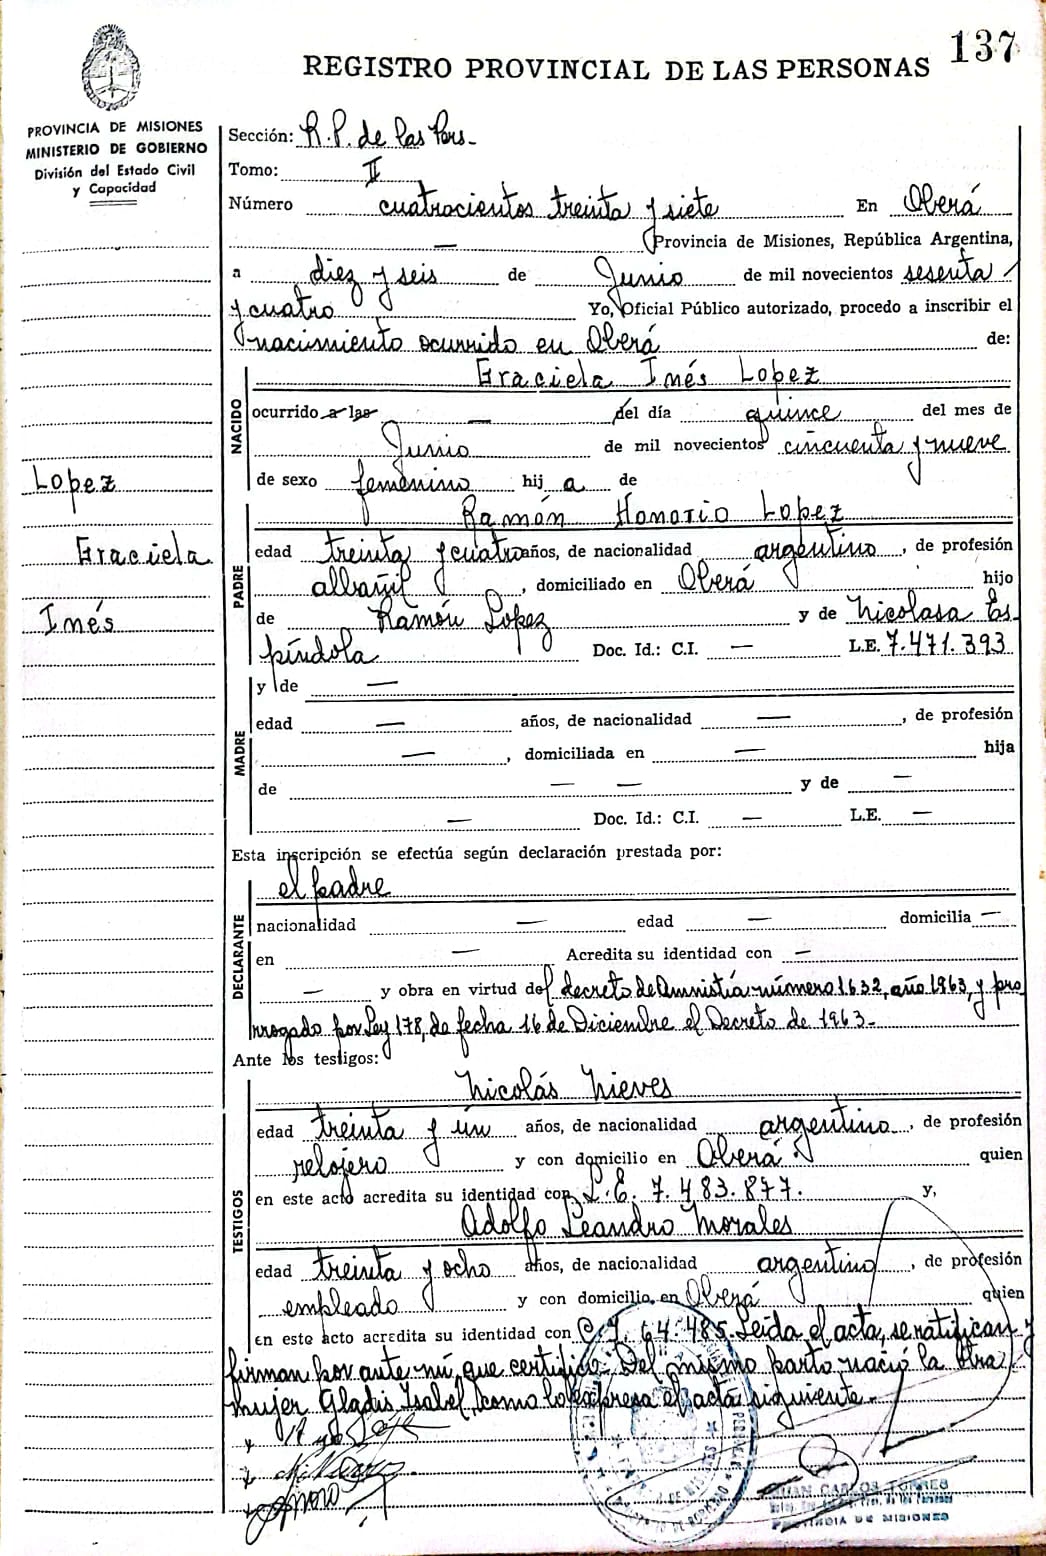 137
REGISTRO PROVINCIAL DE LAS PERSONAS
PROVINCIA DE MISIONES
MINISTERIO DE GOBIERNO
División del Estado Civil
y Capacidad
Lopez
Graciela
Inés
Sección: R.P. de las Pers-
Tomo: II
Número cuatrocientos treinta y siete En Oberá
— Provincia de Misiones, República Argentina,
a diez y seis de Junio de mil novecientos sesenta
y cuatro Yo, Oficial Público autorizado, procedo a inscribir el
nacimiento ocurrido en Oberá de:
NACIDO
Graciela Inés Lopez
ocurrido a las — del día quince del mes de
Junio de mil novecientos cincuenta y nueve
de sexo femenino hij a de
PADRE
Ramón Honorio Lopez
edad treinta y cuatro años, de nacionalidad argentino, de profesión
albañil, domiciliado en Oberá hijo
de Ramón Lopez y de Nicolasa Es
píndola Doc. Id.: C.I. — L.E. 7.471.393
MADRE
y de —
edad — años, de nacionalidad —, de profesión
—, domiciliada en — hija
de — — y de —
— Doc. Id.: C.I. — L.E. —
Esta inscripción se efectúa según declaración prestada por:
DECLARANTE
el padre
nacionalidad — edad — domicilia —
en — Acredita su identidad con —
— y obra en virtud del decreto de Amnistía número 1.632, año 1.963, y pro
rrogado por Ley 178, de fecha 16 de Diciembre el Decreto de 1.963.-
Ante los testigos:
TESTIGOS
Nicolás Nieves
edad treinta y ún años, de nacionalidad argentino, de profesión
relojero y con domicilio en Oberá quien
en este acto acredita su identidad con L.E. 7.483.877. y,
Adolfo Leandro Morales
edad treinta y ocho años, de nacionalidad argentino, de profesión
empleado y con domicilio en Oberá quien
en este acto acredita su identidad con C.I. 64.485. Leída el acta, se ratifican y
firman por ante mí, que certifico. Del mismo parto nació la otra
mujer Gladis Isabel, como lo expresa el acta siguiente.-
JUAN CARLOS TORRES
PROVINCIA DE MISIONES